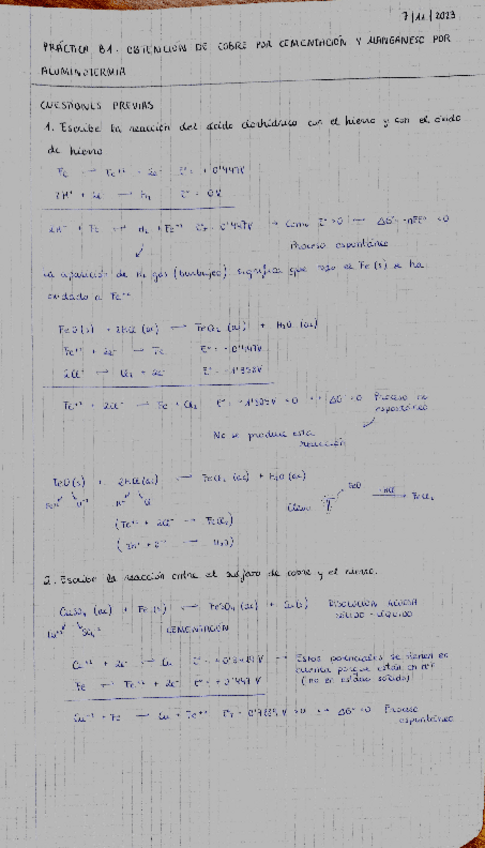 7/11/2023
PRÁCTICA B1. OBTENCIÓN DE COBRE POR CEMENTACIÓN Y MANGANESO POR
ALUMINOTERMIA
CUESTIONES PREVIAS
1. Escribe la reacción del ácido clorhídrico con el hierro y con el óxido
de hierro
Fe → Fe²⁺ + 2e⁻ E° = +0'447V
2H⁺ + 2e⁻ → H₂ E° = 0V
2H⁺ + Fe → H₂ + Fe²⁺ → Como E°>0 → <0
Proceso espontáneo
La aparición de H₂ gas (burbujeo) significa que todo el Fe(s) se ha
oxidado a Fe²⁺
FeO(s) + 2HCl (ac) → FeCl₂ (ac) + H₂O (ac)
Fe²⁺ + 2e⁻ → Fe E° = -0'447V
2Cl⁻ → Cl₂ + 2e⁻
Fe²⁺ + 2Cl⁻ → Fe + Cl₂ Proceso no
espontáneo
No se produce esta
reacción
FeO(s) + 2HCl(ac) → FeCl₂ (ac) + H₂O(ac)
FeO
(Fe²⁺ + 2Cl⁻ → FeCl₂)
FeCl₂
2. Escribe la reacción entre el sulfato de cobre y el hierro.
CuSO₄ (ac) + Fe(s) → FeSO₄ (ac) + Cu(s) DISOLUCIÓN ACUOSA
SÓLIDO - LÍQUIDO
CEMENTACIÓN
Cu²⁺ + 2e⁻ → Cu → Estos potenciales se tienen en
cuenta porque están en
Fe → Fe²⁺ + 2e⁻ E° = +0'447 V (no en estado sólido)
Cu²⁺ + Fe → Cu + Fe²⁺ >0 → <0 Proceso
espontáneo